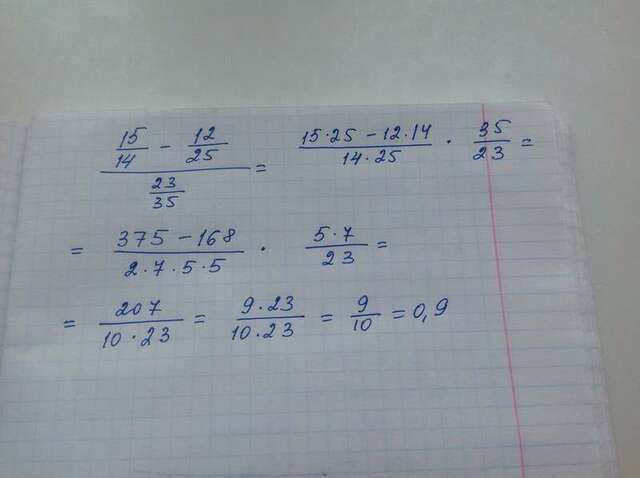 15/14 − 12/25 / 23/35 = 15·25 − 12·14 / 14·25 · 35/23 =
= 375 − 168 / 2·7·5·5 · 5·7 / 23 =
= 207 / 10·23 = 9·23 / 10·23 = 9/10 = 0,9